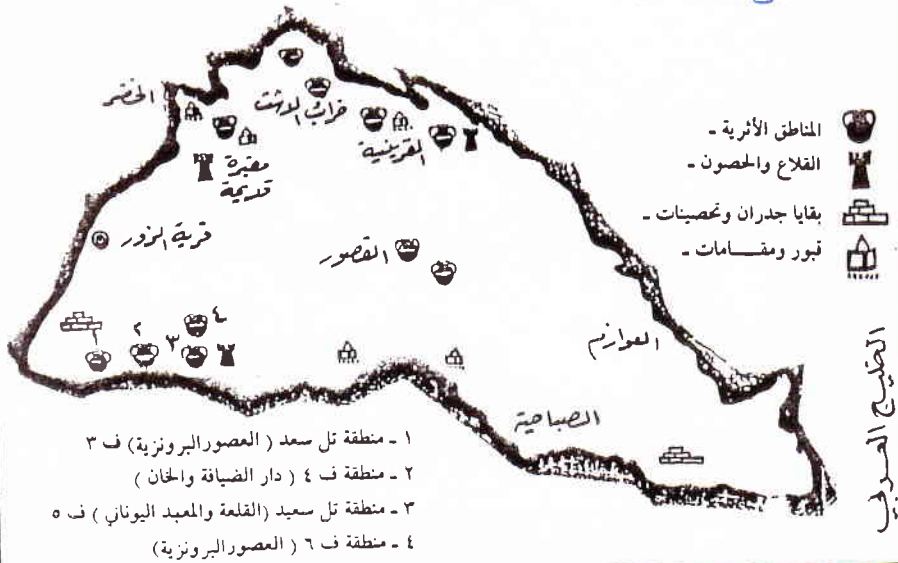 الخضر
خرائب الدشت
القرينية
مقبرة
قديمة
قرية الزور
القصور
العوازم
الصباحية
١
٢
٣
٤
المناطق الأثرية ـ
القلاع والحصون ـ
بقايا جدران وتحصينات ـ
قبور ومقـــامات ـ
الخليج العربي
١ ـ منطقة تل سعد ( العصور البرونزية) ف ٣
٢ ـ منطقة ف ٤ ( دار الضيافة والخان )
٣ ـ منطقة تل سعيد (القلعة والمعبد اليوناني ) ف ٥
٤ ـ منطقة ف ٦ ( العصور البرونزية)